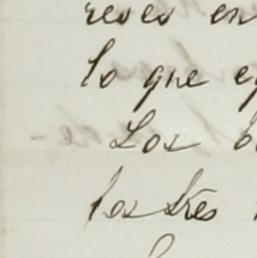 reves en
lo que
Los
los tres